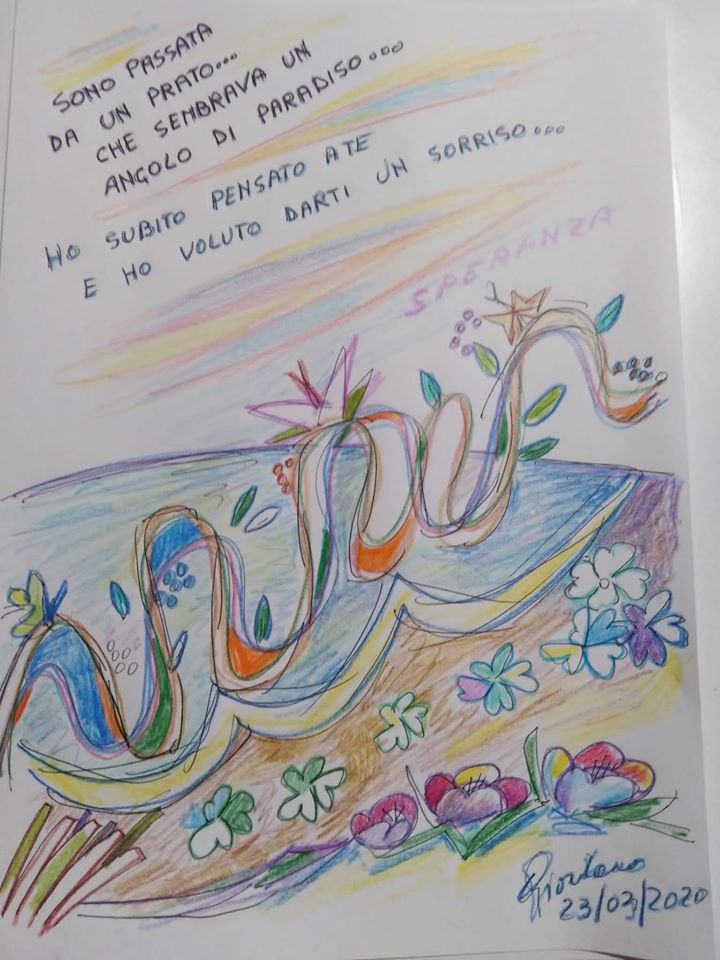 SONO PASSATA
DA UN PRATO...
CHE SEMBRAVA UN
ANGOLO DI PARADISO...
HO SUBITO PENSATO A TE
E HO VOLUTO DARTI UN SORRISO...
SPERANZA
Giordano
23/03/2020